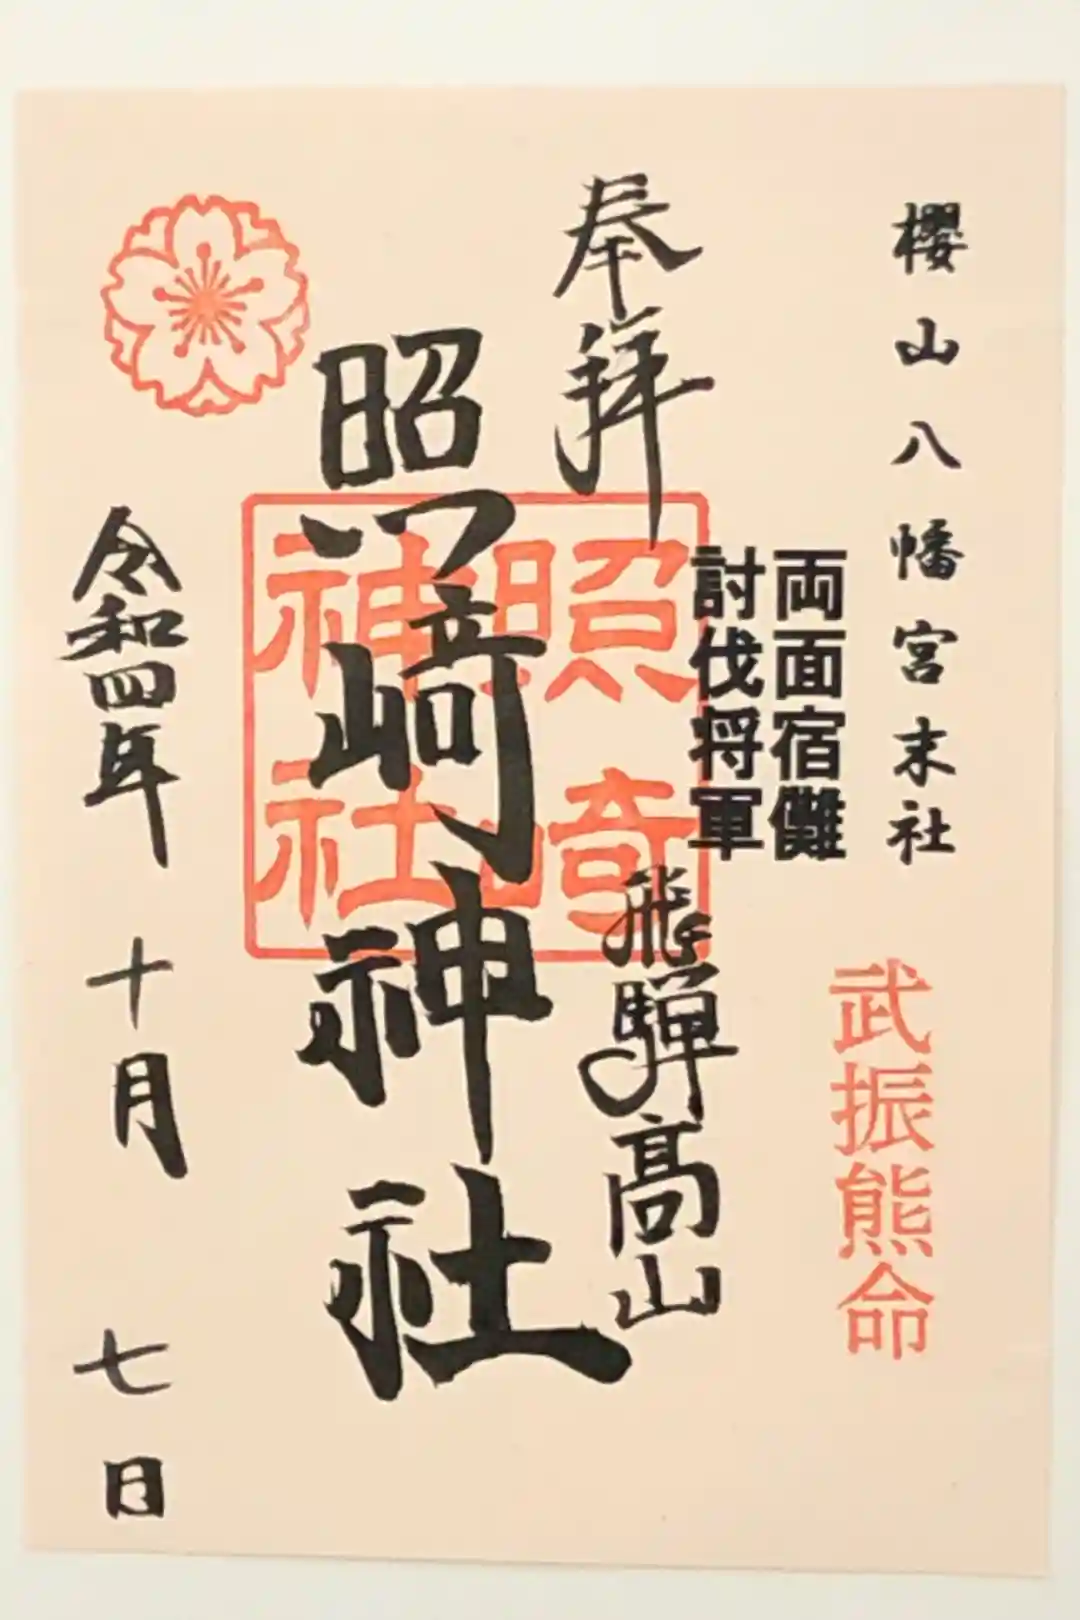 櫻山八幡宮末社
両面宿儺
討伐将軍
武振熊命
奉拝
飛騨高山
照﨑神社
照﨑
神社
令和四年 十月 七日